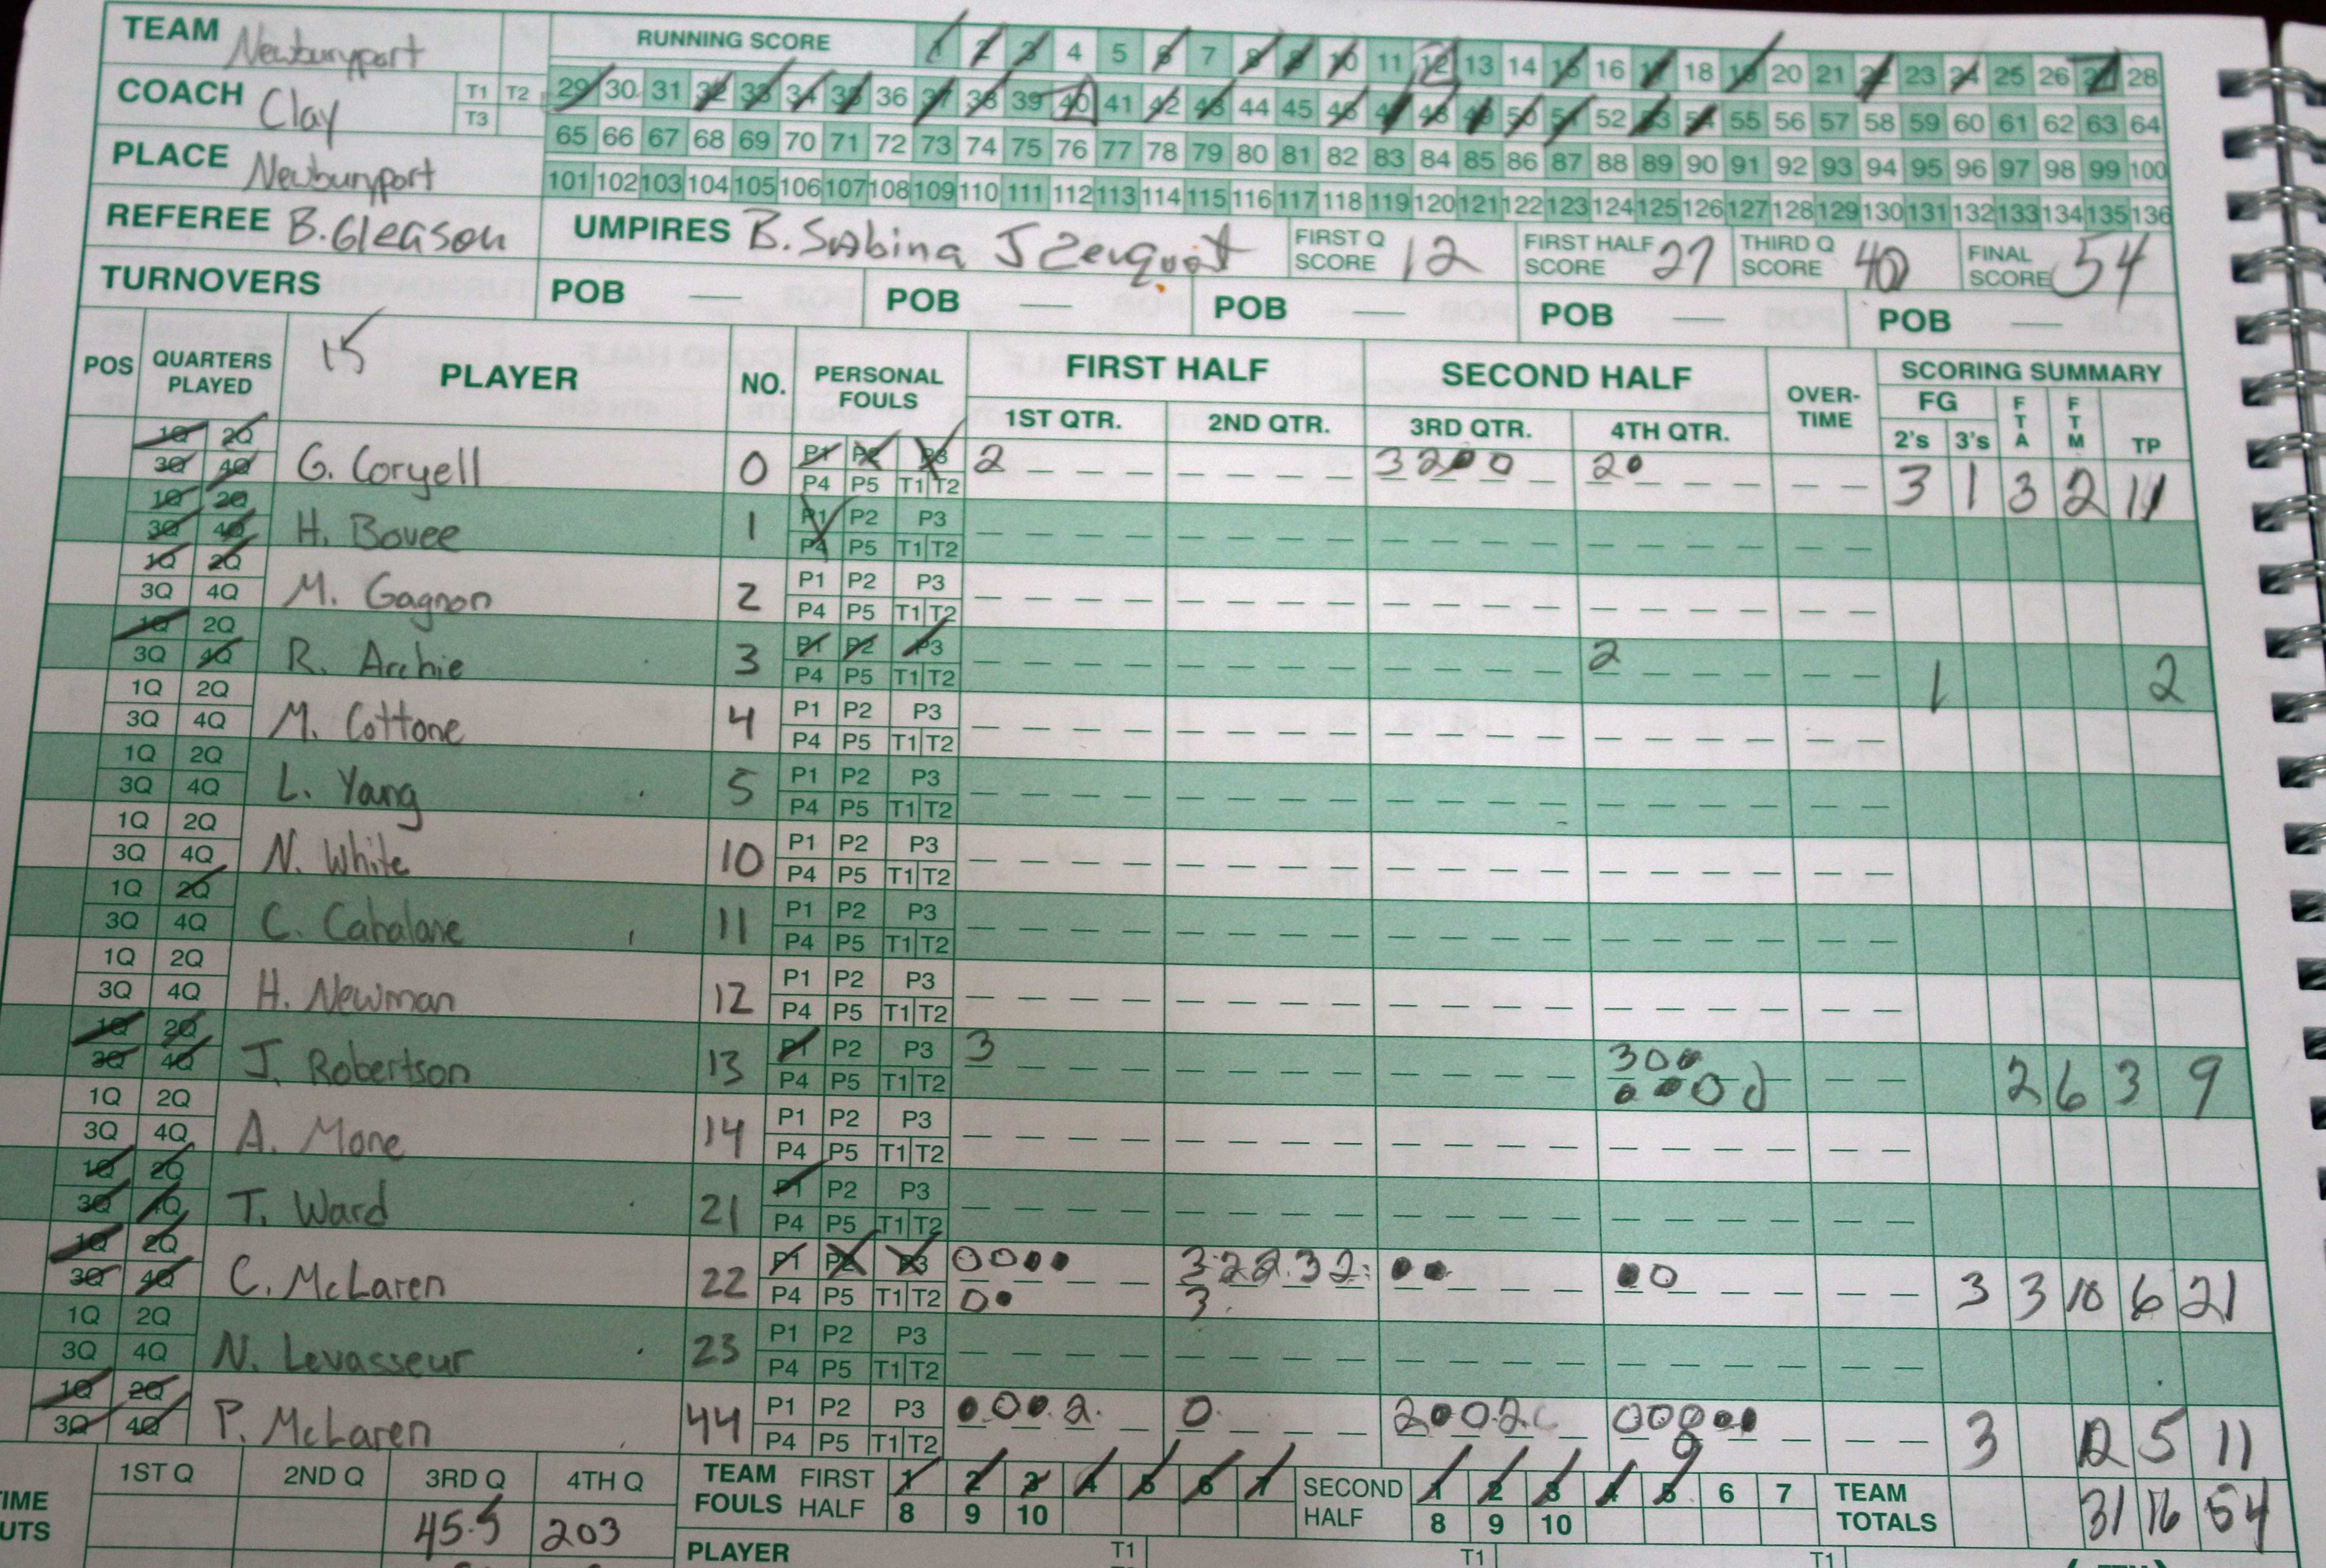 TEAM Newburyport RUNNING SCORE 1 2 3 4 5 6 7 8 9 10 11 12 13 14 15 16 17 18 19 20 21 22 23 24 25 26 27 28
COACH Clay T1 T2 T3 29 30 31 32 33 34 35 36 37 38 39 40 41 42 43 44 45 46 47 48 49 50 51 52 53 54 55 56 57 58 59 60 61 62 63 64
65 66 67 68 69 70 71 72 73 74 75 76 77 78 79 80 81 82 83 84 85 86 87 88 89 90 91 92 93 94 95 96 97 98 99 100
PLACE Newburyport 101 102 103 104 105 106 107 108 109 110 111 112 113 114 115 116 117 118 119 120 121 122 123 124 125 126 127 128 129 130 131 132 133 134 135 136
REFEREE B. Gleason UMPIRES B. Sabina J FIRST Q SCORE 12 FIRST HALF SCORE 27 THIRD Q SCORE 40 FINAL SCORE 54
TURNOVERS POB — POB — POB — POB — POB —
POS QUARTERS PLAYED 15 PLAYER NO. PERSONAL FOULS FIRST HALF SECOND HALF OVER-TIME SCORING SUMMARY
1ST QTR. 2ND QTR. 3RD QTR. 4TH QTR. FG 2's 3's FTA FTM TP
1Q 2Q 3Q 4Q G. Coryell 0 P1 P2 P3 P4 P5 T1 T2 2 3 2 0 0 2 0 3 1 3 2 11
1Q 2Q 3Q 4Q H. Bovee 1 P1 P2 P3 P4 P5 T1 T2
1Q 2Q 3Q 4Q M. Gagnon 2 P1 P2 P3 P4 P5 T1 T2
1Q 2Q 3Q 4Q R. Archie 3 P1 P2 P3 P4 P5 T1 T2 2 1 2
1Q 2Q 3Q 4Q M. Cottone 4 P1 P2 P3 P4 P5 T1 T2
1Q 2Q 3Q 4Q L. Yang 5 P1 P2 P3 P4 P5 T1 T2
1Q 2Q 3Q 4Q N. White 10 P1 P2 P3 P4 P5 T1 T2
1Q 2Q 3Q 4Q C. Cahalane 11 P1 P2 P3 P4 P5 T1 T2
1Q 2Q 3Q 4Q H. Newman 12 P1 P2 P3 P4 P5 T1 T2
1Q 2Q 3Q 4Q J. Robertson 13 P1 P2 P3 P4 P5 T1 T2 3 3 0 0 0 0 0 0 2 6 3 9
1Q 2Q 3Q 4Q A. Mone 14 P1 P2 P3 P4 P5 T1 T2
1Q 2Q 3Q 4Q T. Ward 21 P1 P2 P3 P4 P5 T1 T2
1Q 2Q 3Q 4Q C. McLaren 22 P1 P2 P3 P4 P5 T1 T2 0 0 0 0 0 0 3 2 2 3 2 3 0 0 0 0 3 3 10 6 21
1Q 2Q 3Q 4Q N. Levasseur 23 P1 P2 P3 P4 P5 T1 T2
1Q 2Q 3Q 4Q P. McLaren 44 P1 P2 P3 P4 P5 T1 T2 0 0 0 2 0 2 0 0 2 0 0 3 12 5 11
1ST Q 2ND Q 3RD Q 4TH Q TEAM FOULS FIRST HALF 1 2 3 4 5 6 7 8 9 10 SECOND HALF 1 2 3 4 5 6 7 8 9 10 TEAM TOTALS 31 16 54
IME UTS 45.5 203
PLAYER T1 T1 T1